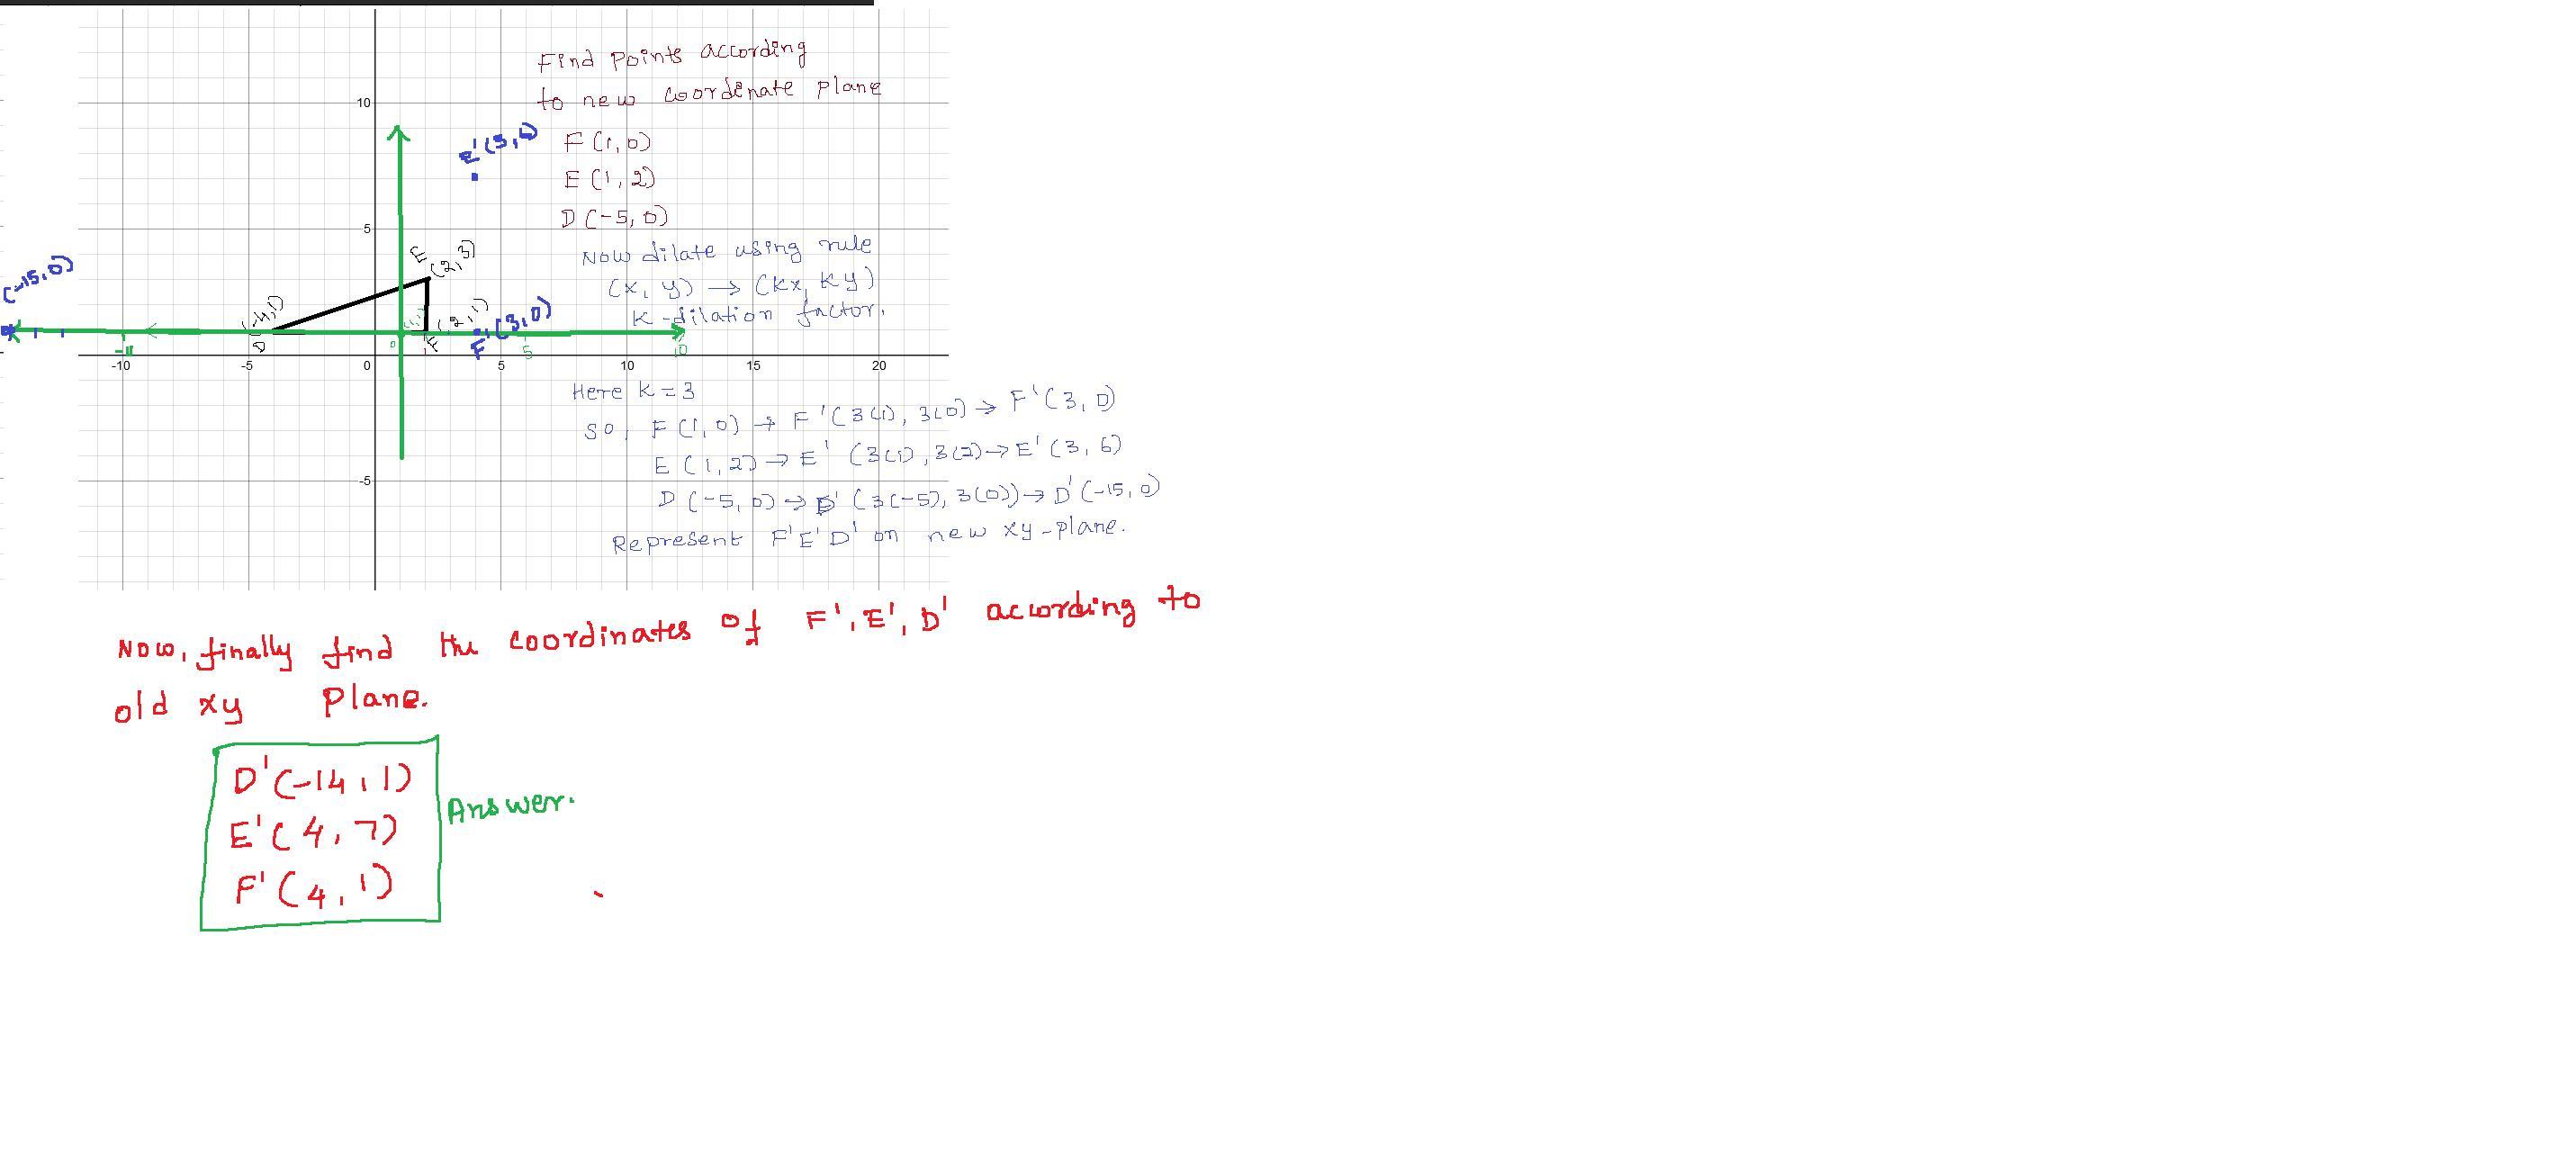 Find Points according
to new coordinate plane
10
E'(3,6)
F (1,0)
E (1,2)
D (-5,0)
5
E
(2,3)
Now dilate using rule
(x, y) → (kx, ky)
K-dilation factor.
(-15,0)
(-4,1)
(2,1)
F'(3,0)
D
0
F
5
10
-10
-5
0
5
10
15
20
Here K = 3
so, F (1,0) → F'(3(1), 3(0) → F'(3, 0)
E (1,2) → E' (3(1), 3(2) → E'(3, 6)
-5
D (-5,0) → D' (3(-5), 3(0)) → D'(-15,0)
Represent F'E'D' on new xy-plane.
Now, finally find the coordinates of F', E', D' according to
old xy Plane.
D'(-14,1)
E'(4,7)
F'(4,1)
Answer.